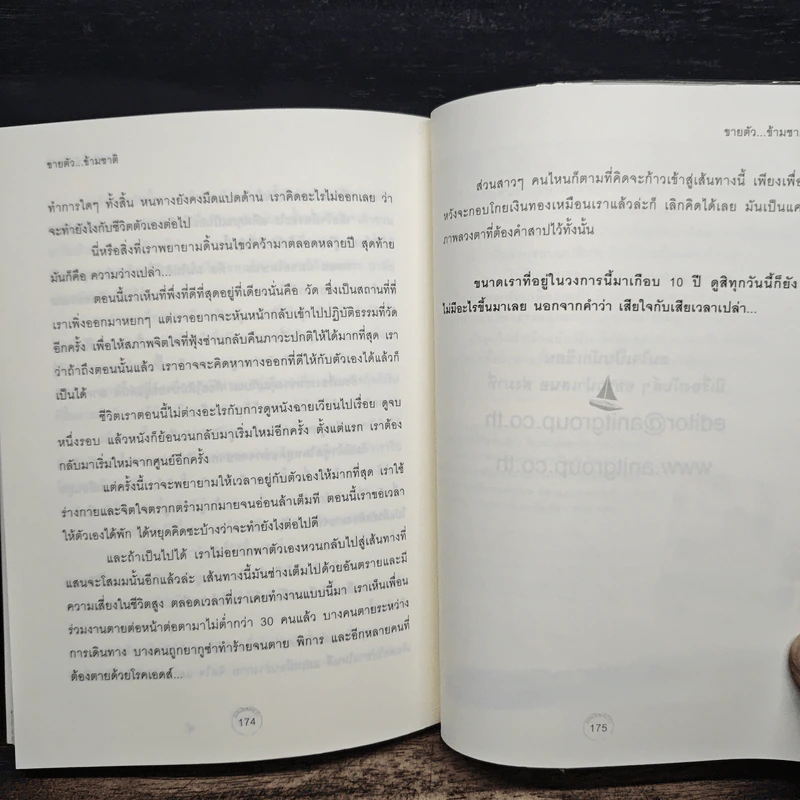 ขายตัว...ข้ามชาติ
ทำการใดๆ ทั้งสิ้น หนทางยังคงมืดแปดด้าน เราคิดอะไรไม่ออกเลย ว่า
จะทำยังไงกับชีวิตตัวเองต่อไป
นี่หรือสิ่งที่เราพยายามดิ้นรนไขว่คว้ามาตลอดหลายปี สุดท้าย
มันก็คือ ความว่างเปล่า...
ตอนนี้เราเห็นที่พึ่งที่ดีที่สุดอยู่ที่เดียวนั่นคือ วัด ซึ่งเป็นสถานที่ที่
เราเพิ่งออกมาหยกๆ แต่เราอยากจะหันหน้ากลับเข้าไปปฏิบัติธรรมที่วัด
อีกครั้ง เพื่อให้สภาพจิตใจที่ฟุ้งซ่านกลับคืนภาวะปกติให้ได้มากที่สุด เรา
ว่าถ้าถึงตอนนั้นแล้ว เราอาจจะคิดหาทางออกที่ดีให้กับตัวเองได้แล้วก็
เป็นได้
ชีวิตเราตอนนี้ไม่ต่างอะไรกับการดูหนังฉายเวียนไปเรื่อย ดูจบ
หนึ่งรอบ แล้วหนังก็ย้อนวนกลับมาเริ่มใหม่อีกครั้ง ตั้งแต่แรก เราต้อง
กลับมาเริ่มใหม่จากศูนย์อีกครั้ง
แต่ครั้งนี้เราจะพยายามให้เวลาอยู่กับตัวเองให้มากที่สุด เราใช้
ร่างกายและจิตใจตรากตรำมากมายจนอ่อนล้าเต็มที ตอนนี้เราขอเวลา
ให้ตัวเองได้พัก ได้หยุดคิดซะบ้างว่าจะทำยังไงต่อไปดี
และถ้าเป็นไปได้ เราไม่อยากพาตัวเองหวนกลับไปสู่เส้นทางที่
แสนจะโสมมนั้นอีกแล้วล่ะ เส้นทางนี้มันช่างเต็มไปด้วยอันตรายและมี
ความเสี่ยงในชีวิตสูง ตลอดเวลาที่เราเคยทำงานแบบนี้มา เราเห็นเพื่อน
ร่วมงานตายต่อหน้าต่อตามาไม่ต่ำกว่า 30 คนแล้ว บางคนตายระหว่าง
การเดินทาง บางคนถูกยากูซ่าทำร้ายจนตาย พิการ และอีกหลายคนที่
ต้องตายด้วยโรคเอดส์...
174
ขายตัว...ข้ามชา
ส่วนสาวๆ คนไหนก็ตามที่คิดจะก้าวเข้าสู่เส้นทางนี้ เพียงเพื่อ
หวังจะกอบโกยเงินทองเหมือนเราแล้วล่ะก็ เลิกคิดได้เลย มันเป็นแค่
ภาพลวงตาที่ต้องคำสาปไว้ทั้งนั้น
ขนาดเราที่อยู่ในวงการนี้มาเกือบ 10 ปี ดูสิทุกวันนี้ก็ยัง
ไม่มีอะไรขึ้นมาเลย นอกจากคำว่า เสียใจกับเสียเวลาเปล่า...
175